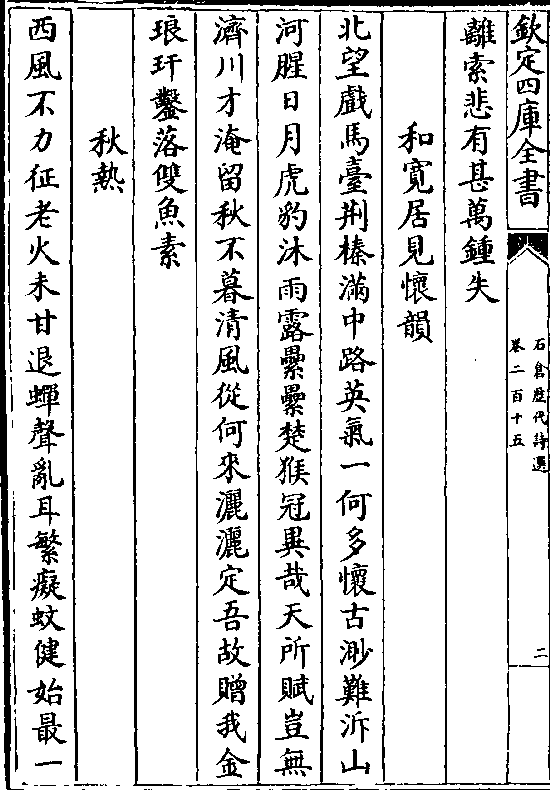 欽定四庫全書
石倉歴代詩選
卷二百十五
二
離索悲有甚萬鍾失
和寛居見懷韻
北望戲馬臺荆榛滿中路英氣一何多懷古渺難泝山
河腥日月虎豹沐雨露纍纍楚猴冠異哉天所賦豈無
濟川才淹留秋不暮清風從何來灑灑定吾故贈我金
琅玕鑿落雙魚素
秋熱
西風不力征老火未甘退蟬聲亂耳繁癡蚊健始最一